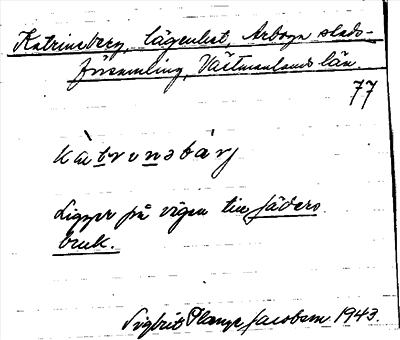 Katrineberg, lägenhet, Arboga stads-
församling, Västmanlands län.
77
Kàtrinəbárj
Ligger på vägen till Jäders
bruk.
Sigbrit Plange Jacobsen 1943.